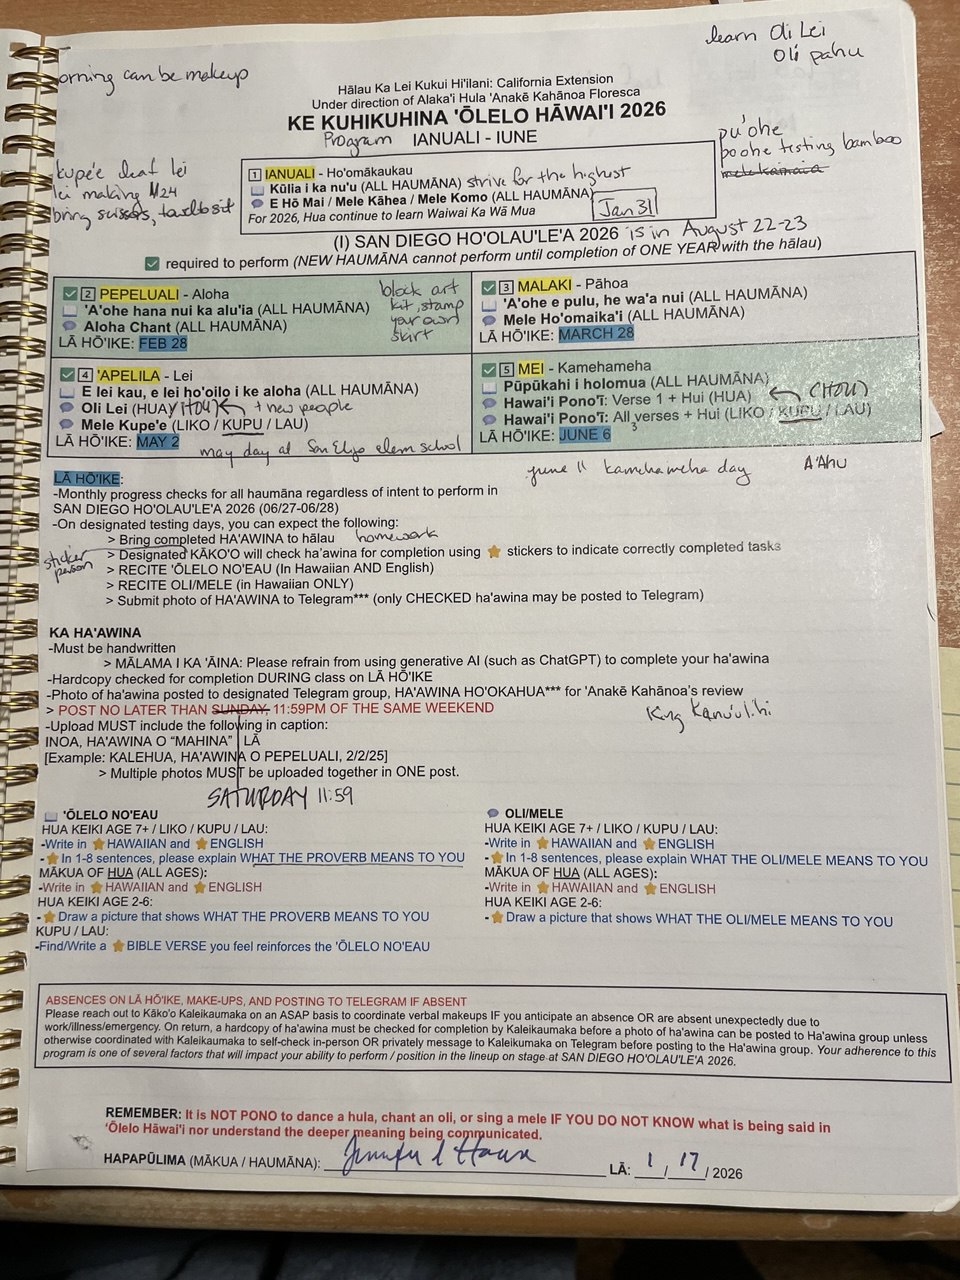 learn Oli Lei
Oli pahu
orning can be makeup
Hālau Ka Lei Kukui Hi'ilani: California Extension
Under direction of Alaka'i Hula 'Anakē Kahānoa Floresca
KE KUHIKUHINA 'ŌLELO HĀWAI'I 2026
Program IANUALI - IUNE
pu'ohe
poohe testing bamboo
mele kamaia
kupe'e leaf lei
lei making 1/24
bring scissors,
1 IANUALI - Ho'omākaukau
Kūlia i ka nu'u (ALL HAUMĀNA) strive for the highest
E Hō Mai / Mele Kāhea / Mele Komo (ALL HAUMĀNA)
Jan 31
For 2026, Hua continue to learn Waiwai Ka Wā Mua
(I) SAN DIEGO HO'OLAU'LE'A 2026 is in August 22-23
required to perform (NEW HAUMĀNA cannot perform until completion of ONE YEAR with the hālau)
2 PEPELUALI - Aloha
'A'ohe hana nui ka alu'ia (ALL HAUMĀNA)
Aloha Chant (ALL HAUMĀNA)
LĀ HŌ'IKE: FEB 28
block art
kit, stamp
your own
skirt
3 MALAKI - Pāhoa
'A'ohe e pulu, he wa'a nui (ALL HAUMĀNA)
Mele Ho'omaika'i (ALL HAUMĀNA)
LĀ HŌ'IKE: MARCH 28
4 'APELILA - Lei
E lei kau, e lei ho'oilo i ke aloha (ALL HAUMĀNA)
Oli Lei (HUA)/(HOU) + new people
Mele Kupe'e (LIKO / KUPU / LAU)
LĀ HŌ'IKE: MAY 2
may day at San Elijo elem school
5 MEI - Kamehameha
Pūpūkahi i holomua (ALL HAUMĀNA)
Hawai'i Pono'ī: Verse 1 + Hui (HUA) (HOU)
Hawai'i Pono'ī: All 3 verses + Hui (LIKO / KUPU / LAU)
LĀ HŌ'IKE: JUNE 6
june 11 kamehameha day
A'Ahu
LĀ HŌ'IKE:
-Monthly progress checks for all haumāna regardless of intent to perform in
SAN DIEGO HO'OLAU'LE'A 2026 (06/27-06/28)
-On designated testing days, you can expect the following:
> Bring completed HA'AWINA to hālau homework
sticker
person
> Designated KĀKO'O will check ha'awina for completion using ⭐ stickers to indicate correctly completed tasks
> RECITE 'ŌLELO NO'EAU (In Hawaiian AND English)
> RECITE OLI/MELE (in Hawaiian ONLY)
> Submit photo of HA'AWINA to Telegram*** (only CHECKED ha'awina may be posted to Telegram)
KA HA'AWINA
-Must be handwritten
> MĀLAMA I KA 'ĀINA: Please refrain from using generative AI (such as ChatGPT) to complete your ha'awina
-Hardcopy checked for completion DURING class on LĀ HŌ'IKE
-Photo of ha'awina posted to designated Telegram group, HA'AWINA HO'OKAHUA*** for 'Anakē Kahānoa's review
> POST NO LATER THAN SUNDAY, 11:59PM OF THE SAME WEEKEND
-Upload MUST include the following in caption:
INOA, HA'AWINA O "MAHINA" LĀ
[Example: KALEHUA, HA'AWINA O PEPELUALI, 2/2/25]
> Multiple photos MUST be uploaded together in ONE post.
SATURDAY 11:59
'ŌLELO NO'EAU
HUA KEIKI AGE 7+ / LIKO / KUPU / LAU:
-Write in ⭐ HAWAIIAN and ⭐ ENGLISH
-⭐ In 1-8 sentences, please explain WHAT THE PROVERB MEANS TO YOU
MĀKUA OF HUA (ALL AGES):
-Write in ⭐ HAWAIIAN and ⭐ ENGLISH
HUA KEIKI AGE 2-6:
-⭐ Draw a picture that shows WHAT THE PROVERB MEANS TO YOU
KUPU / LAU:
-Find/Write a ⭐ BIBLE VERSE you feel reinforces the 'ŌLELO NO'EAU
OLI/MELE
HUA KEIKI AGE 7+ / LIKO / KUPU / LAU:
-Write in ⭐ HAWAIIAN and ⭐ ENGLISH
-⭐ In 1-8 sentences, please explain WHAT THE OLI/MELE MEANS TO YOU
MĀKUA OF HUA (ALL AGES):
-Write in ⭐ HAWAIIAN and ⭐ ENGLISH
HUA KEIKI AGE 2-6:
-⭐ Draw a picture that shows WHAT THE OLI/MELE MEANS TO YOU
ABSENCES ON LĀ HŌ'IKE, MAKE-UPS, AND POSTING TO TELEGRAM IF ABSENT
Please reach out to Kāko'o Kaleikaumaka on an ASAP basis to coordinate verbal makeups IF you anticipate an absence OR are absent unexpectedly due to
work/illness/emergency. On return, a hardcopy of ha'awina must be checked for completion by Kaleikaumaka before a photo of ha'awina can be posted to Ha'awina group unless
otherwise coordinated with Kaleikaumaka to self-check in-person OR privately message to Kaleikumaka on Telegram before posting to the Ha'awina group. Your adherence to this
program is one of several factors that will impact your ability to perform / position in the lineup on stage at SAN DIEGO HO'OLAU'LE'A 2026.
REMEMBER: It is NOT PONO to dance a hula, chant an oli, or sing a mele IF YOU DO NOT KNOW what is being said in
'Ōlelo Hāwai'i nor understand the deeper meaning being communicated.
HAPAPŪLIMA (MĀKUA / HAUMĀNA): LĀ: 1/17/2026